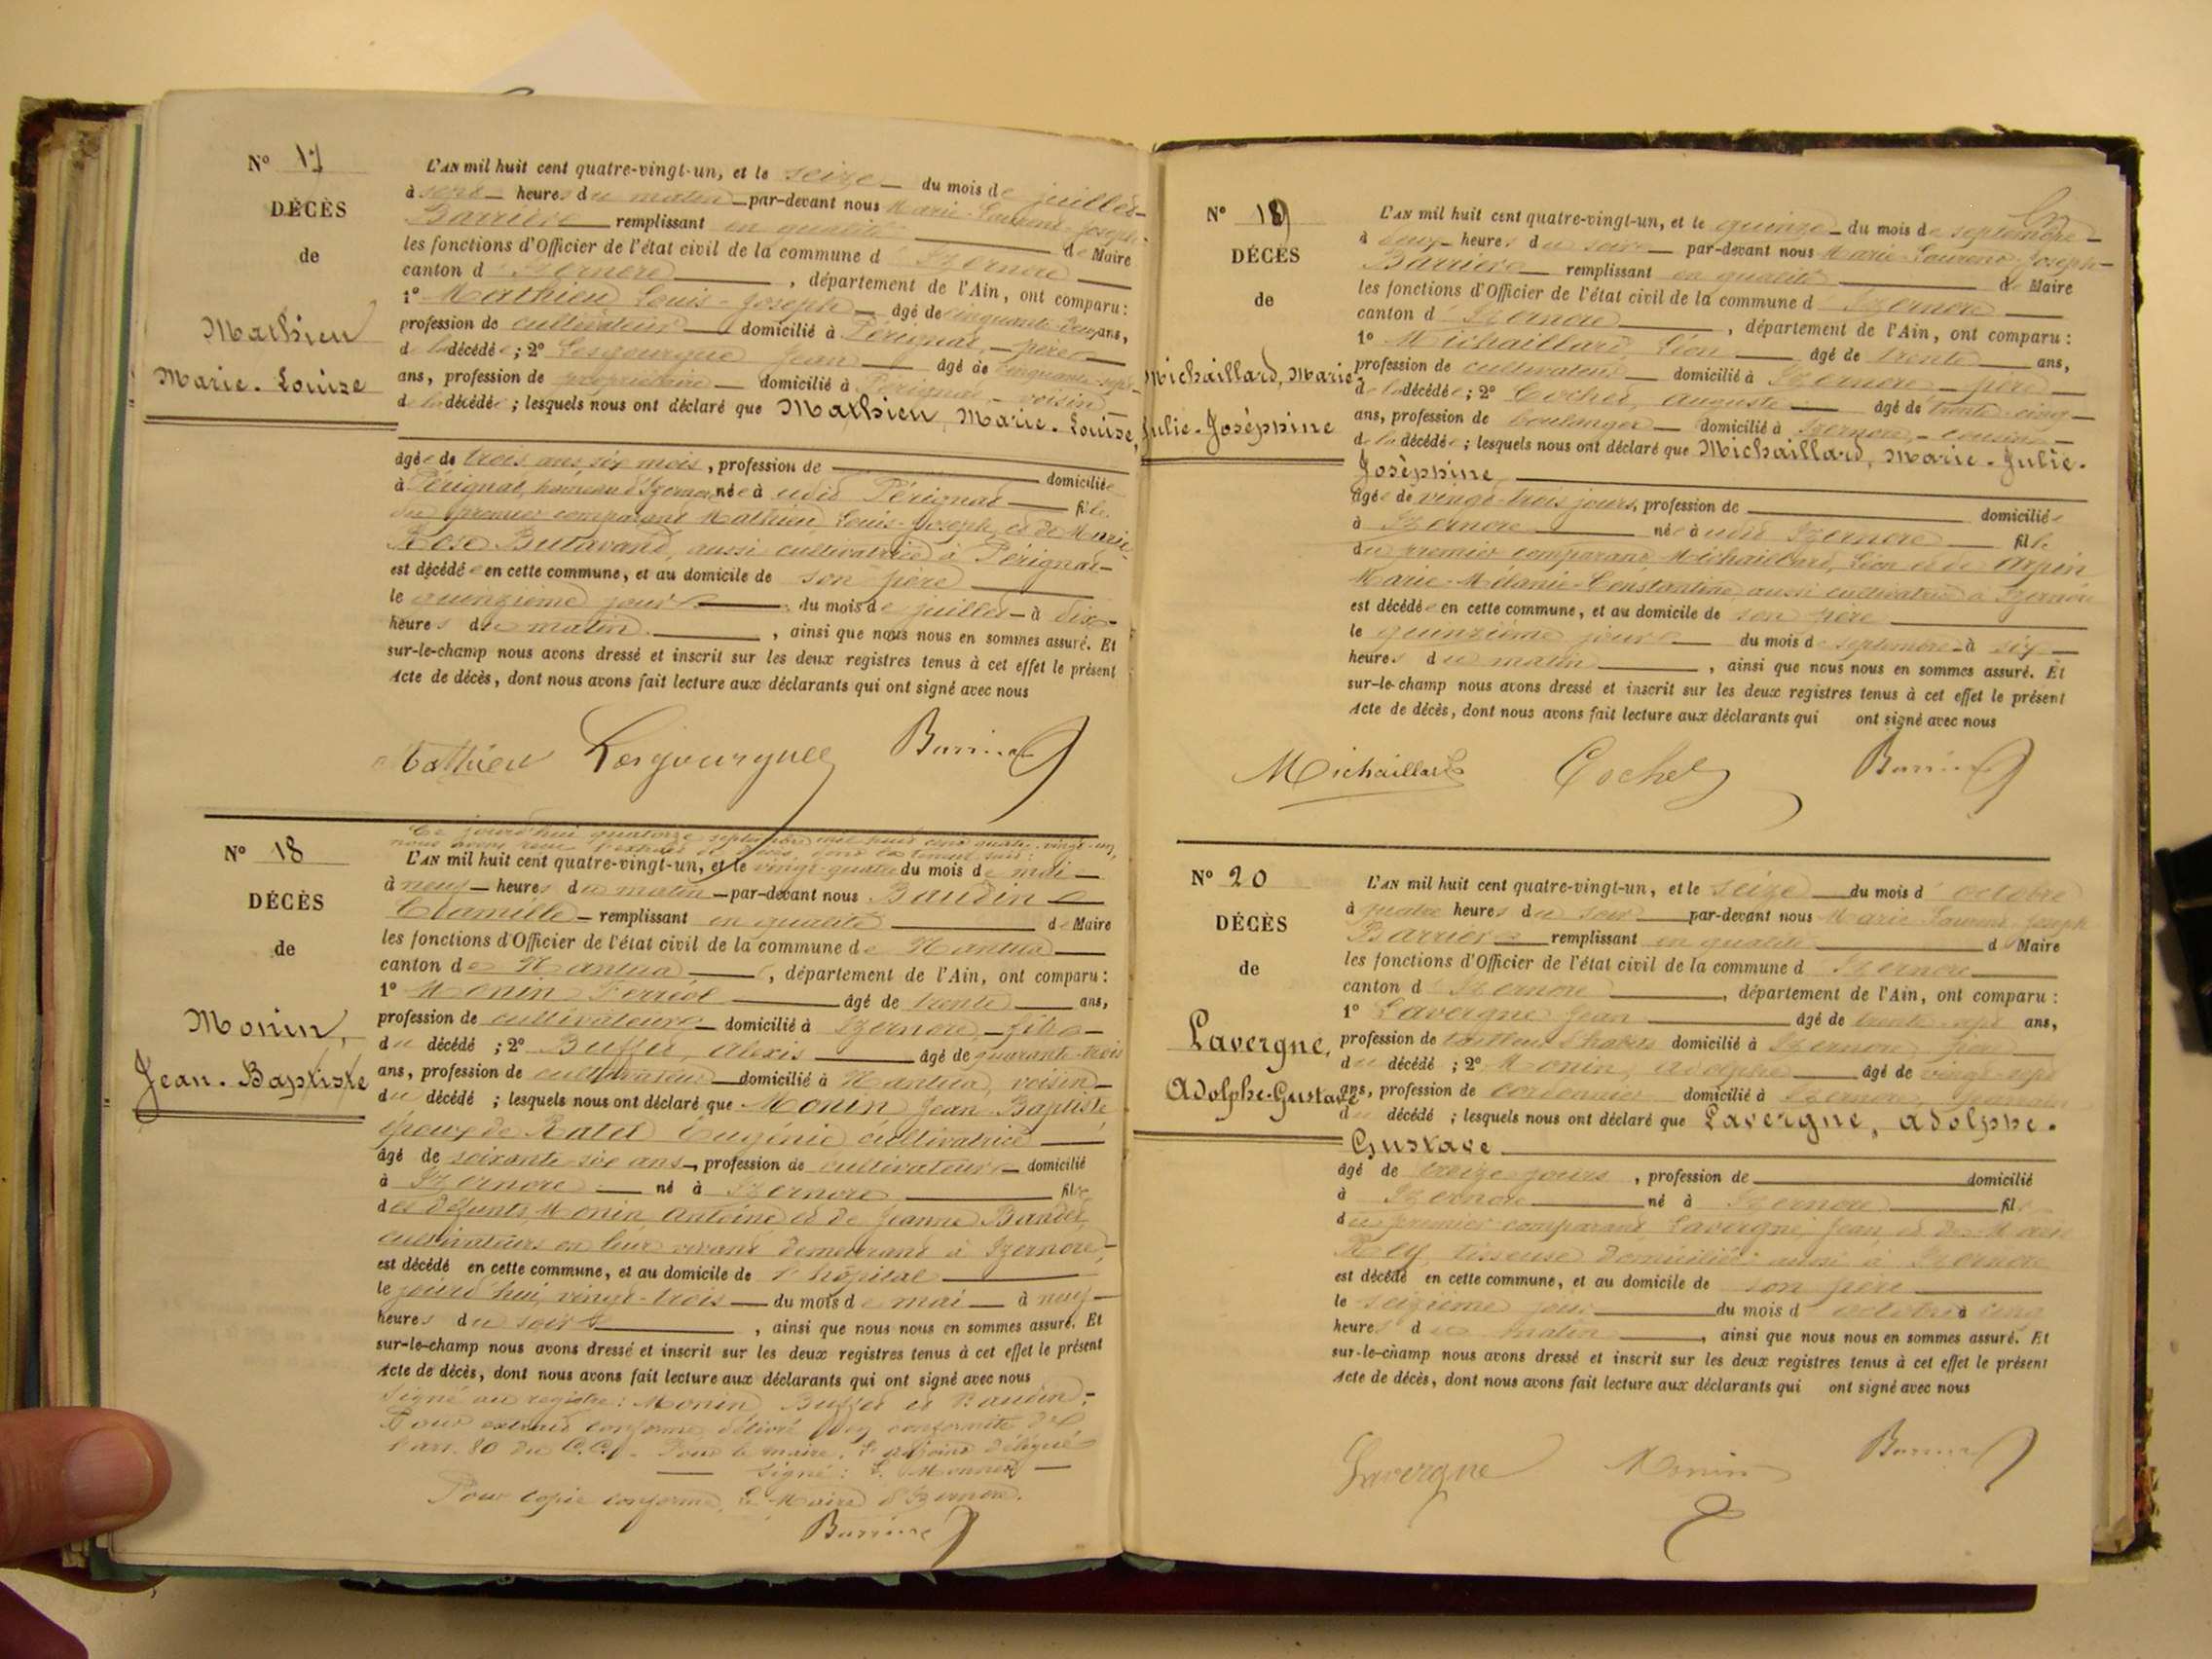 N° 17
DÉCÈS
de
Mathieu
Marie-Louise
L'AN mil huit cent quatre-vingt-un, et le seize du mois de juillet
à sept heures du matin par-devant nous Marie-Laurent-Joseph
Barrière remplissant en qualité de Maire
les fonctions d'Officier de l'état civil de la commune d'Izernore
canton d'Izernore, département de l'Ain, ont comparu :
1° Mathieu Louis-Joseph âgé de cinquante-deux ans,
profession de cultivateur domicilié à Pérignat, père
de la décédée ; 2° Lesgourgues Jean âgé de cinquante-sept
ans, profession de propriétaire domicilié à Pérignat, voisin
de la décédée ; lesquels nous ont déclaré que Mathieu, Marie-Louise,
âgée de trois ans six mois, profession de domiciliée
à Pérignat, hameau d'Izernore née à udit Pérignat fille
du premier comparant Mathieu Louis-Joseph, et de Marie
Rose Butavand, aussi cultivatrice à Pérignat
est décédée en cette commune, et au domicile de son père
le quinzième jour du mois de juillet à dix
heures du matin, ainsi que nous nous en sommes assuré. Et
sur-le-champ nous avons dressé et inscrit sur les deux registres tenus à cet effet le présent
Acte de décès, dont nous avons fait lecture aux déclarants qui ont signé avec nous
Mathieu Lesgourgues Barrière
N° 18
DÉCÈS
de
Monin,
Jean-Baptiste
Ce jourd'hui quatorze septembre mil huit cent quatre-vingt-un,
nous avons reçu l'extrait de décès dont la teneur suit :
L'AN mil huit cent quatre-vingt-un, et le vingt-quatre du mois de mai
à neuf heures du matin par-devant nous Baudin
Camille remplissant en qualité de Maire
les fonctions d'Officier de l'état civil de la commune de Nantua
canton de Nantua, département de l'Ain, ont comparu :
1° Monin Ferréol âgé de trente ans,
profession de cultivateur domicilié à Izernore, fils
du décédé ; 2° Buffet, Alexis âgé de quarante-trois
ans, profession de cultivateur domicilié à Nantua, voisin
du décédé ; lesquels nous ont déclaré que Monin Jean-Baptiste
époux de Ratel Eugénie cultivatrice
âgé de soixante-six ans, profession de cultivateur domicilié
à Izernore né à Izernore fils
des défunts Monin Antoine et de Jeanne Bandet
cultivateurs en leur vivant demeurant à Izernore,
est décédé en cette commune, et au domicile de l'hôpital
le jourd'hui, vingt-trois du mois de mai à neuf
heures du soir, ainsi que nous nous en sommes assuré. Et
sur-le-champ nous avons dressé et inscrit sur les deux registres tenus à cet effet le présent
Acte de décès, dont nous avons fait lecture aux déclarants qui ont signé avec nous
Signé au registre : Monin, Buffet et Baudin.
Pour extrait conforme délivré en conformité de
l'art. 80 du C.C. Pour le maire, l'adjoint délégué
signé :
Pour copie conforme, Le Maire d'Izernore.
Barrière
N° 19
DÉCÈS
de
Michaillard, Marie-
Julie-Joséphine
L'AN mil huit cent quatre-vingt-un, et le quinze du mois de septembre
à deux heures du soir par-devant nous Marie-Laurent-Joseph
Barrière remplissant en qualité de Maire
les fonctions d'Officier de l'état civil de la commune d'Izernore
canton d'Izernore, département de l'Ain, ont comparu :
1° Michaillard, Léon âgé de trente ans,
profession de cultivateur domicilié à Izernore, père
de la décédée ; 2° Cochet, Auguste âgé de trente-cinq
ans, profession de boulanger domicilié à Izernore, cousin
de la décédée ; lesquels nous ont déclaré que Michaillard, Marie-Julie-
Joséphine,
âgée de vingt-trois jours, profession de domiciliée
à Izernore née à udit Izernore fille
du premier comparant Michaillard, Léon et de Arpin
Marie-Mélanie-Constantine aussi cultivatrice à Izernore
est décédée en cette commune, et au domicile de son père
le quinzième jour du mois de septembre à six
heures du matin, ainsi que nous nous en sommes assuré. Et
sur-le-champ nous avons dressé et inscrit sur les deux registres tenus à cet effet le présent
Acte de décès, dont nous avons fait lecture aux déclarants qui ont signé avec nous
Michaillard Cochet Barrière
N° 20
DÉCÈS
de
Lavergne,
Adolphe-Gustave
L'AN mil huit cent quatre-vingt-un, et le seize du mois d'octobre
à quatre heures du soir par-devant nous Marie-Laurent-Joseph
Barrière remplissant en qualité de Maire
les fonctions d'Officier de l'état civil de la commune d'Izernore
canton d'Izernore, département de l'Ain, ont comparu :
1° Lavergne Jean âgé de trente-sept ans,
profession de tailleur d'habits domicilié à Izernore, père
du décédé ; 2° Monin, Adolphe âgé de vingt-sept
ans, profession de cordonnier domicilié à Izernore,
du décédé ; lesquels nous ont déclaré que Lavergne, Adolphe-
Gustave
âgé de treize jours, profession de domicilié
à Izernore né à Izernore fils
du premier comparant Lavergne, Jean, et de Marie
Rey, tisseuse domiciliée aussi à Izernore
est décédé en cette commune, et au domicile de son père
le seizième jour du mois d'octobre à cinq
heures du matin, ainsi que nous nous en sommes assuré. Et
sur-le-champ nous avons dressé et inscrit sur les deux registres tenus à cet effet le présent
Acte de décès, dont nous avons fait lecture aux déclarants qui ont signé avec nous
Lavergne Monin Barrière